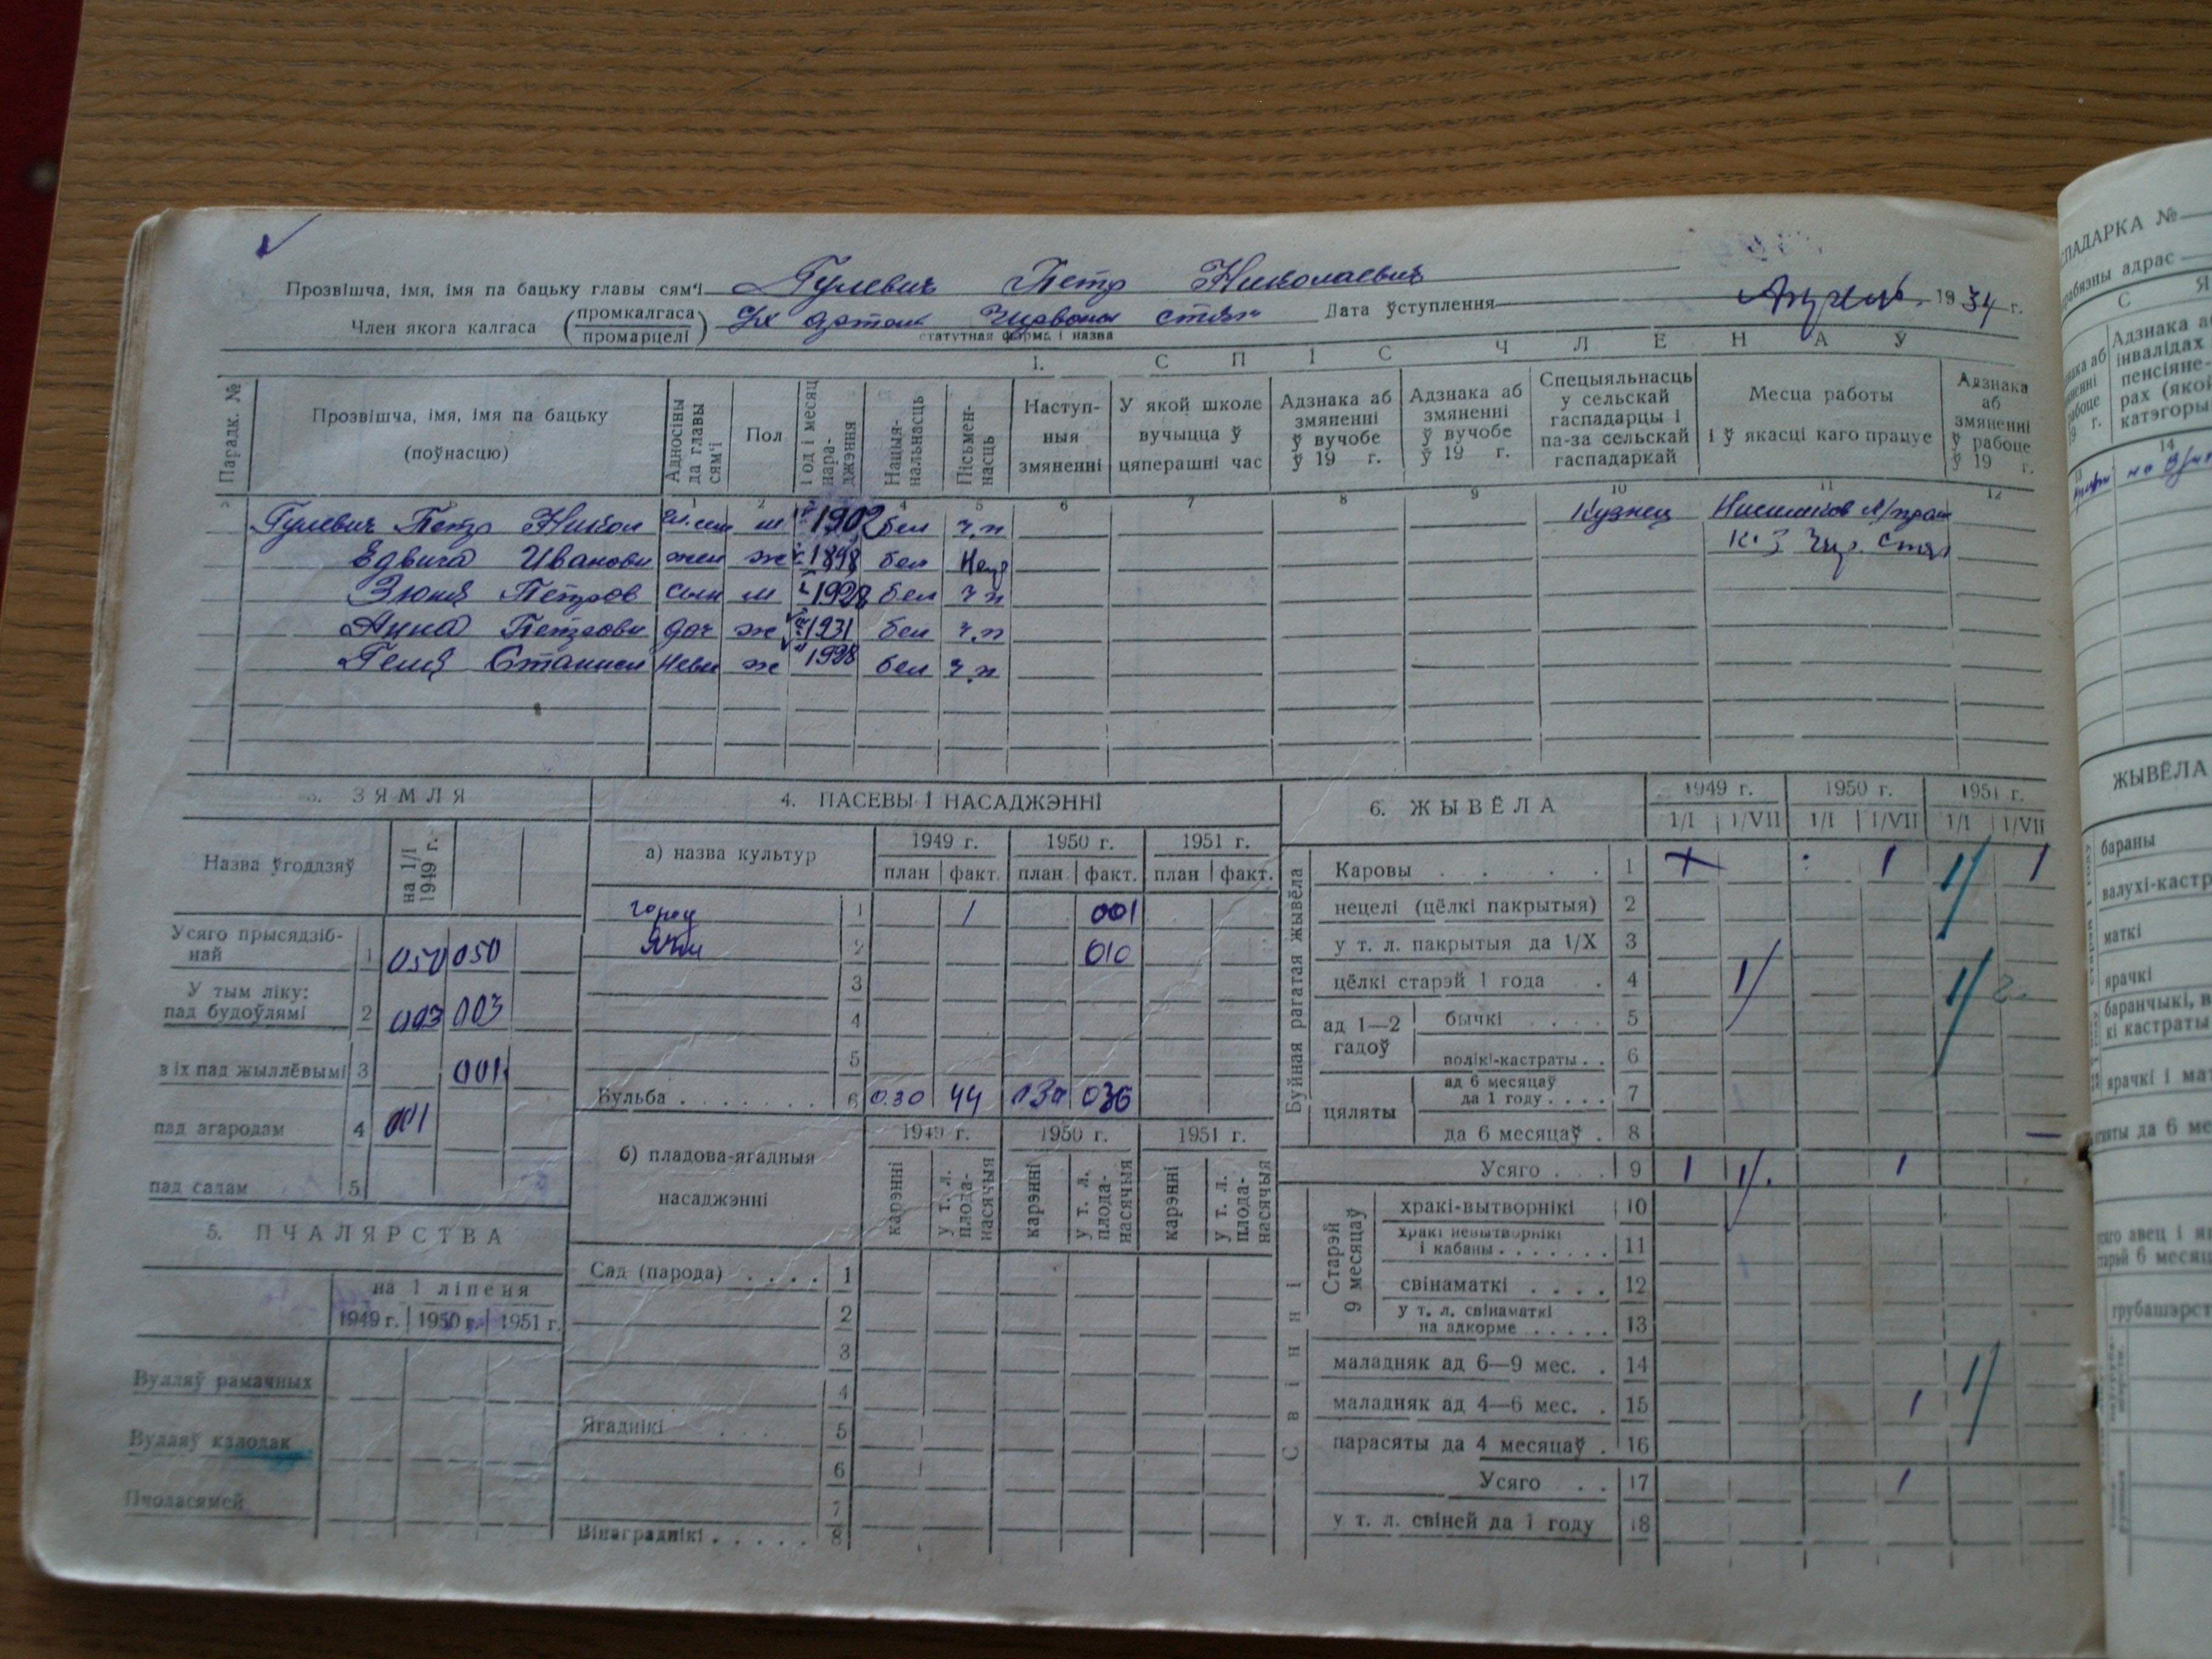 Прозвішча, імя, імя па бацьку главы сям'і Гулевич Петр Николаевич
Член якога калгаса (промкалгаса / промарцелі) с/х артель Дата ўступлення 1934 г.
статутная форма і назва
1. СПІС ЧЛЕНАЎ
Парадк. № Прозвішча, імя, імя па бацьку (поўнасцю) Адносіны да главы сям'і Пол Год і месяц нараджэння Нацыянальнасць Пісьменнасць Наступныя змяненні У якой школе вучыцца ў цяперашні час Адзнака аб змяненні ў вучобе ў 19 г. Адзнака аб змяненні ў вучобе ў 19 г. Спецыяльнасць у сельскай гаспадарцы і па-за сельскай гаспадаркай Месца работы і ў якасці каго працуе Адзнака аб змяненні ў рабоце ў 19 г.
1 2 4 5 6 7 8 9 10 11 12
Гулевич Петр Никол гл. сем м 1902 бел ч.п Кузнец
Едвига Иванови жен ж 1898 бел Негр К-з Чыр. Стяг
Зюня Петров сын м 1928 бел ч.п
Анна Петрови доч ж 1931 бел ч.п
Геля Станисл невес ж 1928 бел ч.п
3. ЗЯМЛЯ
Назва ўгоддзяў на 1/I 1949 г.
Усяго прысядзібнай 1 050 050
У тым ліку: пад будоўлямі 2 003 003
з іх пад жыллёвымі 3 001
пад агародам 4
пад садам 5
5. ПЧАЛЯРСТВА
на 1 ліпеня
1949 г. 1950 г. 1951 г.
Вулляў рамачных
Вулляў калодак
Пчоласямей
4. ПАСЕВЫ І НАСАДЖЭННІ
а) назва культур 1949 г. 1950 г. 1951 г.
план факт. план факт. план факт.
город 1 1 001
Ячм 2 010
3
4
5
Бульба 6 0.30 44 036
б) пладова-ягадныя насаджэнні 1949 г. 1950 г. 1951 г.
карэнні у т. л. плоданасячыя карэнні у т. л. плоданасячыя карэнні у т. л. плоданасячыя
Сад (парода) . . . . 1
2
3
4
Ягаднікі 5
6
7
Вінаграднікі . . . . . 8
6. ЖЫВЁЛА 1949 г. 1950 г. 1951 г.
1/I 1/VII 1/I 1/VII 1/I 1/VII
Буйная рагатая жывёла
Каровы . . . . 1 1 1 1
нецелі (цёлкі пакрытыя) 2
у т. л. пакрытыя да 1/X 3
цёлкі старэй 1 года . 4 1 1
ад 1—2 гадоў бычкі . . . . 5
полікі-кастраты . . 6
цяляты ад 6 месяцаў да 1 году . . . . 7
да 6 месяцаў . 8
Усяго . . . 9 1 1 1
Свінні
Старэй 9 месяцаў хракі-вытворнікі 10
хракі невытворнікі і кабаны . . . . . . . 11
свінаматкі . . . . 12
у т. л. свінаматкі на адкорме . . . . . 13
маладняк ад 6—9 мес. . 14 1
маладняк ад 4—6 мес. . 15 1
парасяты да 4 месяцаў . 16
Усяго . . 17 1
у т. л. свіней да 1 году 18
СПАДАРКА №
адрас
ЖЫВЁЛА
бараны
валухі-кастр
маткі
ярачкі
баранчыкі, в
кі кастраты
ярачкі і мат
да 6 ме
авец і яг
6 месяц
грубашэрст